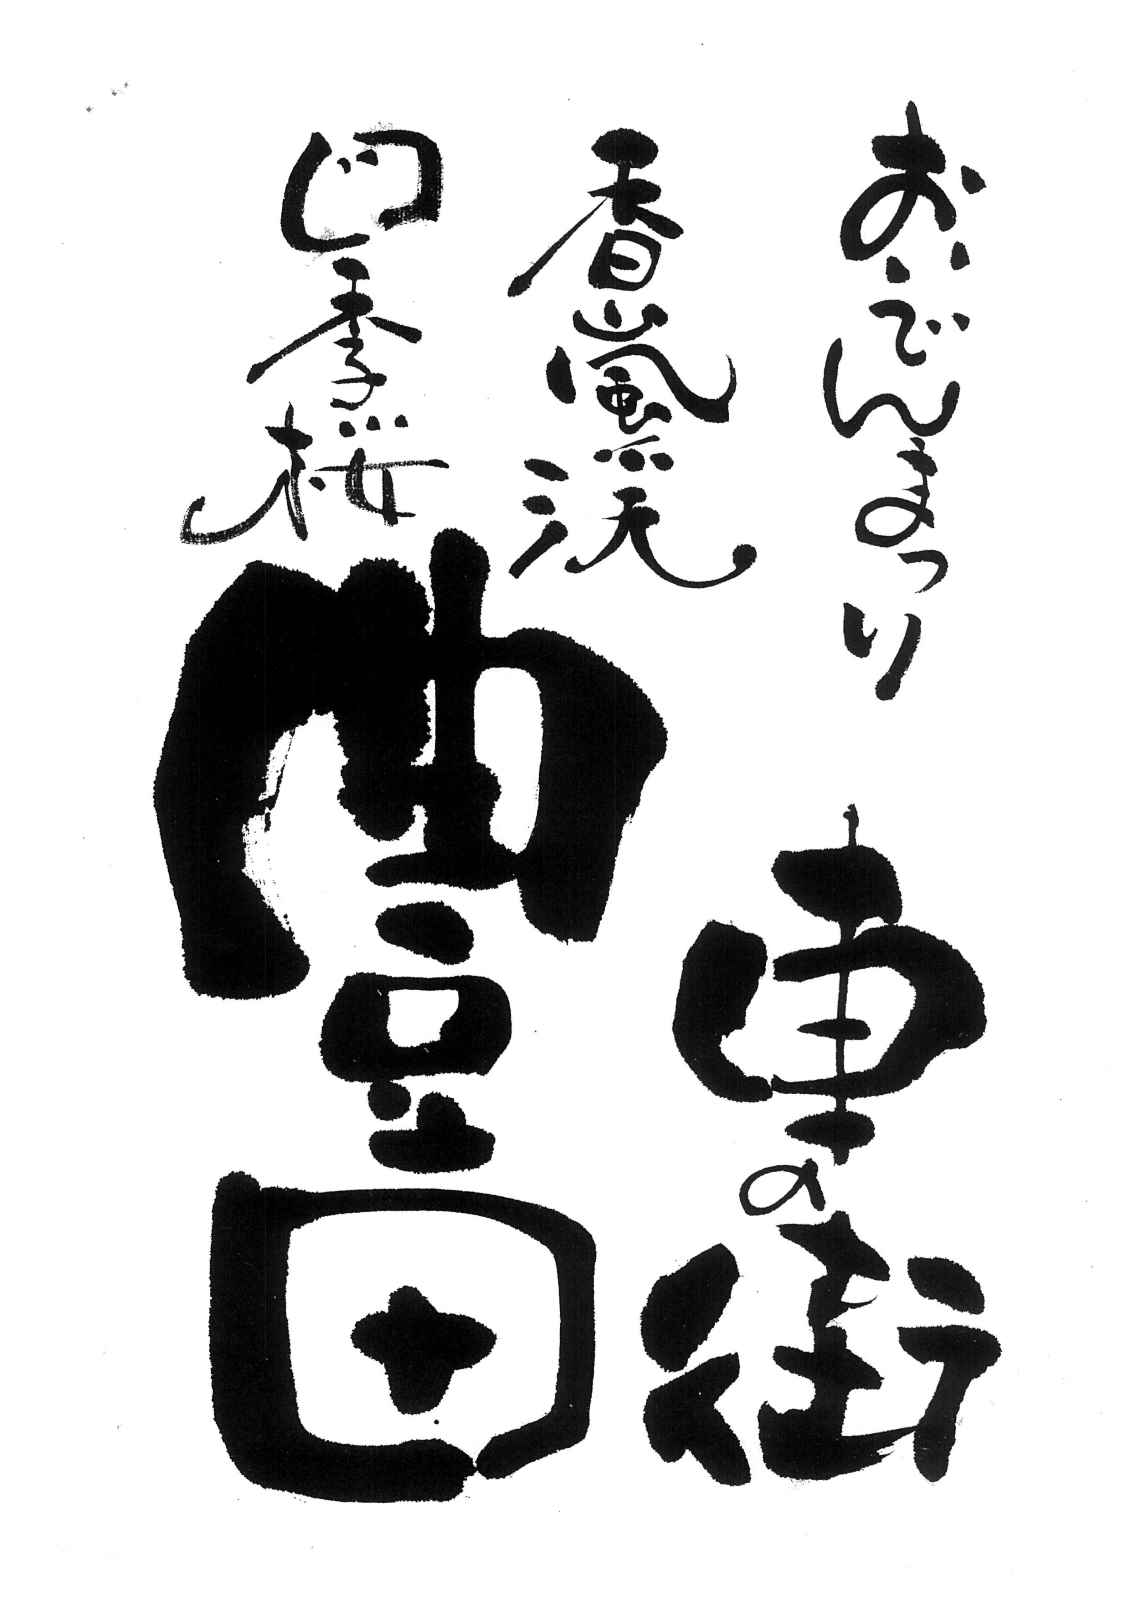 おいでんまつり
車の街
香嵐渓
四季桜
豊田